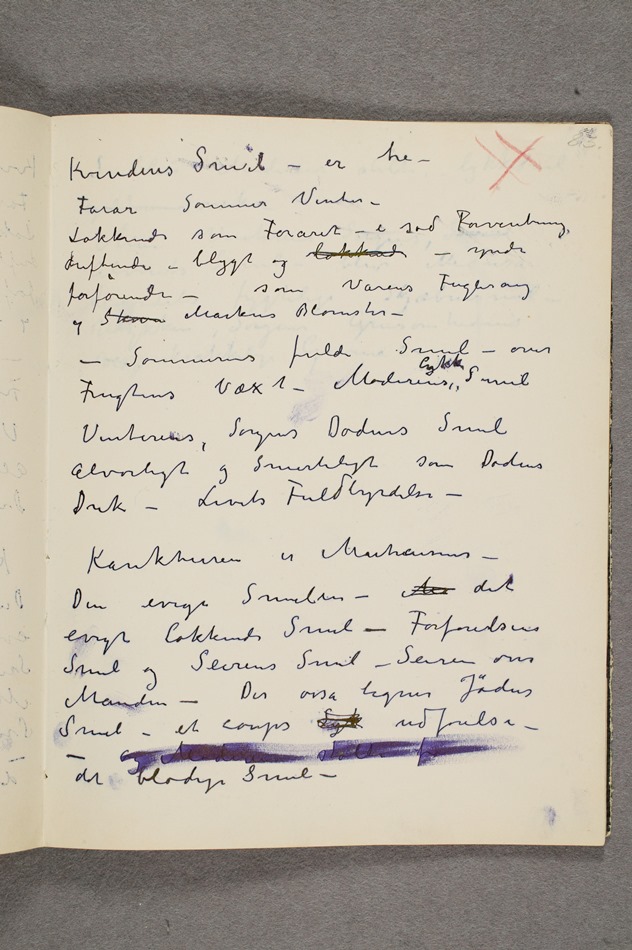 Kvindens Smil – er tre –
Foraar Sommer Vinter –
Lokkende som Foraret – i sød Forventning,
duftende – blygt og lokkende – ynde
forførende – som Vaarens Fuglesang
og Skove Markens Blomster –
– Sommerens fulde Smil – over
Frugtens Væxt – Moderens lykke Smil
Vinterens, Sorgens Dødens Smil
alvorligt og Smerteligt som Dødens
Drik – Livets Fuldbyrdelse –
er
Den evige Smilen – det
evigt lokkende Smil – Forførelsens
Smil og Seirens Smil – Seiren over
Manden – Det ossa ligner Jødens
Smil – et coups udførelse –
og Moderens
– det blodige Smil –